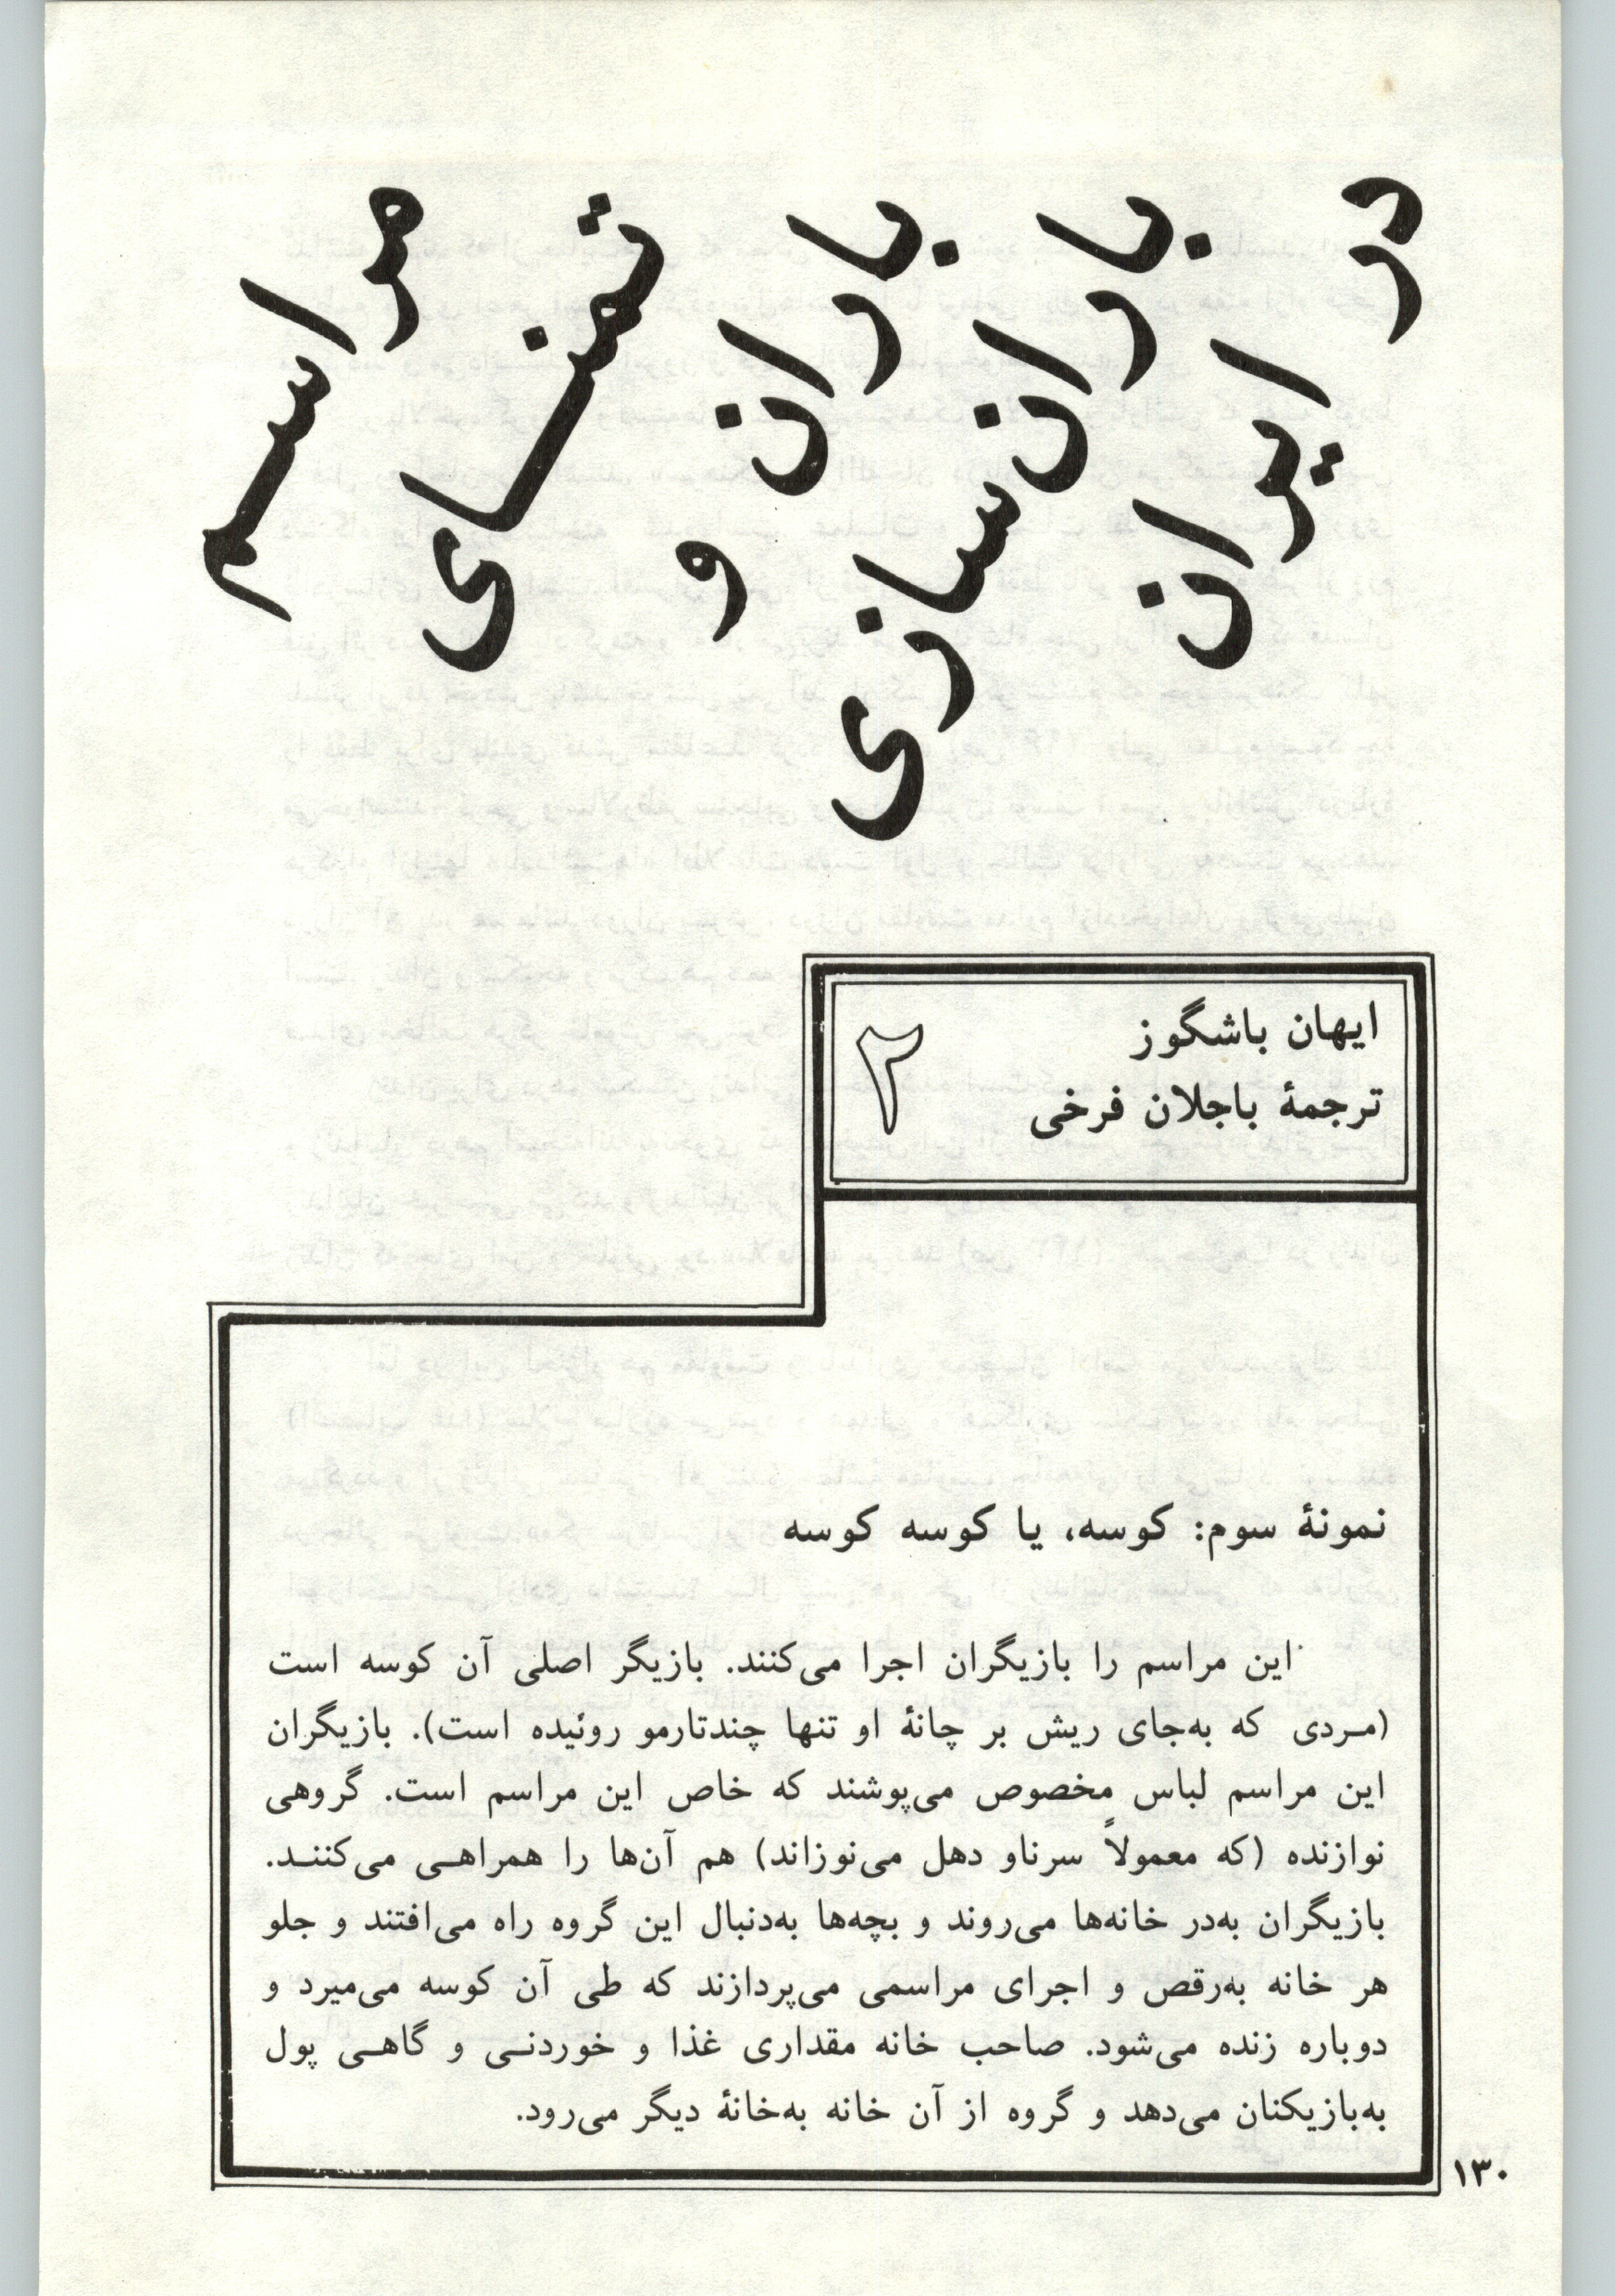 مراسم
تمنای
باران
و
باران‌سازی
در
ایران
ایهان باشگوز
ترجمهٔ باجلان فرخی
۲
نمونهٔ سوم: کوسه، یا کوسه کوسه
این مراسم را بازیگران اجرا می‌کنند. بازیگر اصلی آن کوسه است
(مـردی که به‌جای ریش بر چانهٔ او تنها چندتارمو روئیده است). بازیگران
این مراسم لباس مخصوص می‌پوشند که خاص این مراسم است. گروهی
نوازنده (که معمولاً سرناو دهل می‌نوزاند) هم آن‌ها را همراهـی می‌کننـد.
بازیگران به‌در خانه‌ها می‌روند و بچه‌ها به‌دنبال این گروه راه می‌افتند و جلو
هر خانه به‌رقص و اجرای مراسمی می‌پردازند که طی آن کوسه می‌میرد و
دوباره زنده می‌شود. صاحب خانه مقداری غذا و خوردنـی و گاهـی پول
به‌بازیکنان می‌دهد و گروه از آن خانه به‌خانهٔ دیگر می‌رود.
۱۳۰